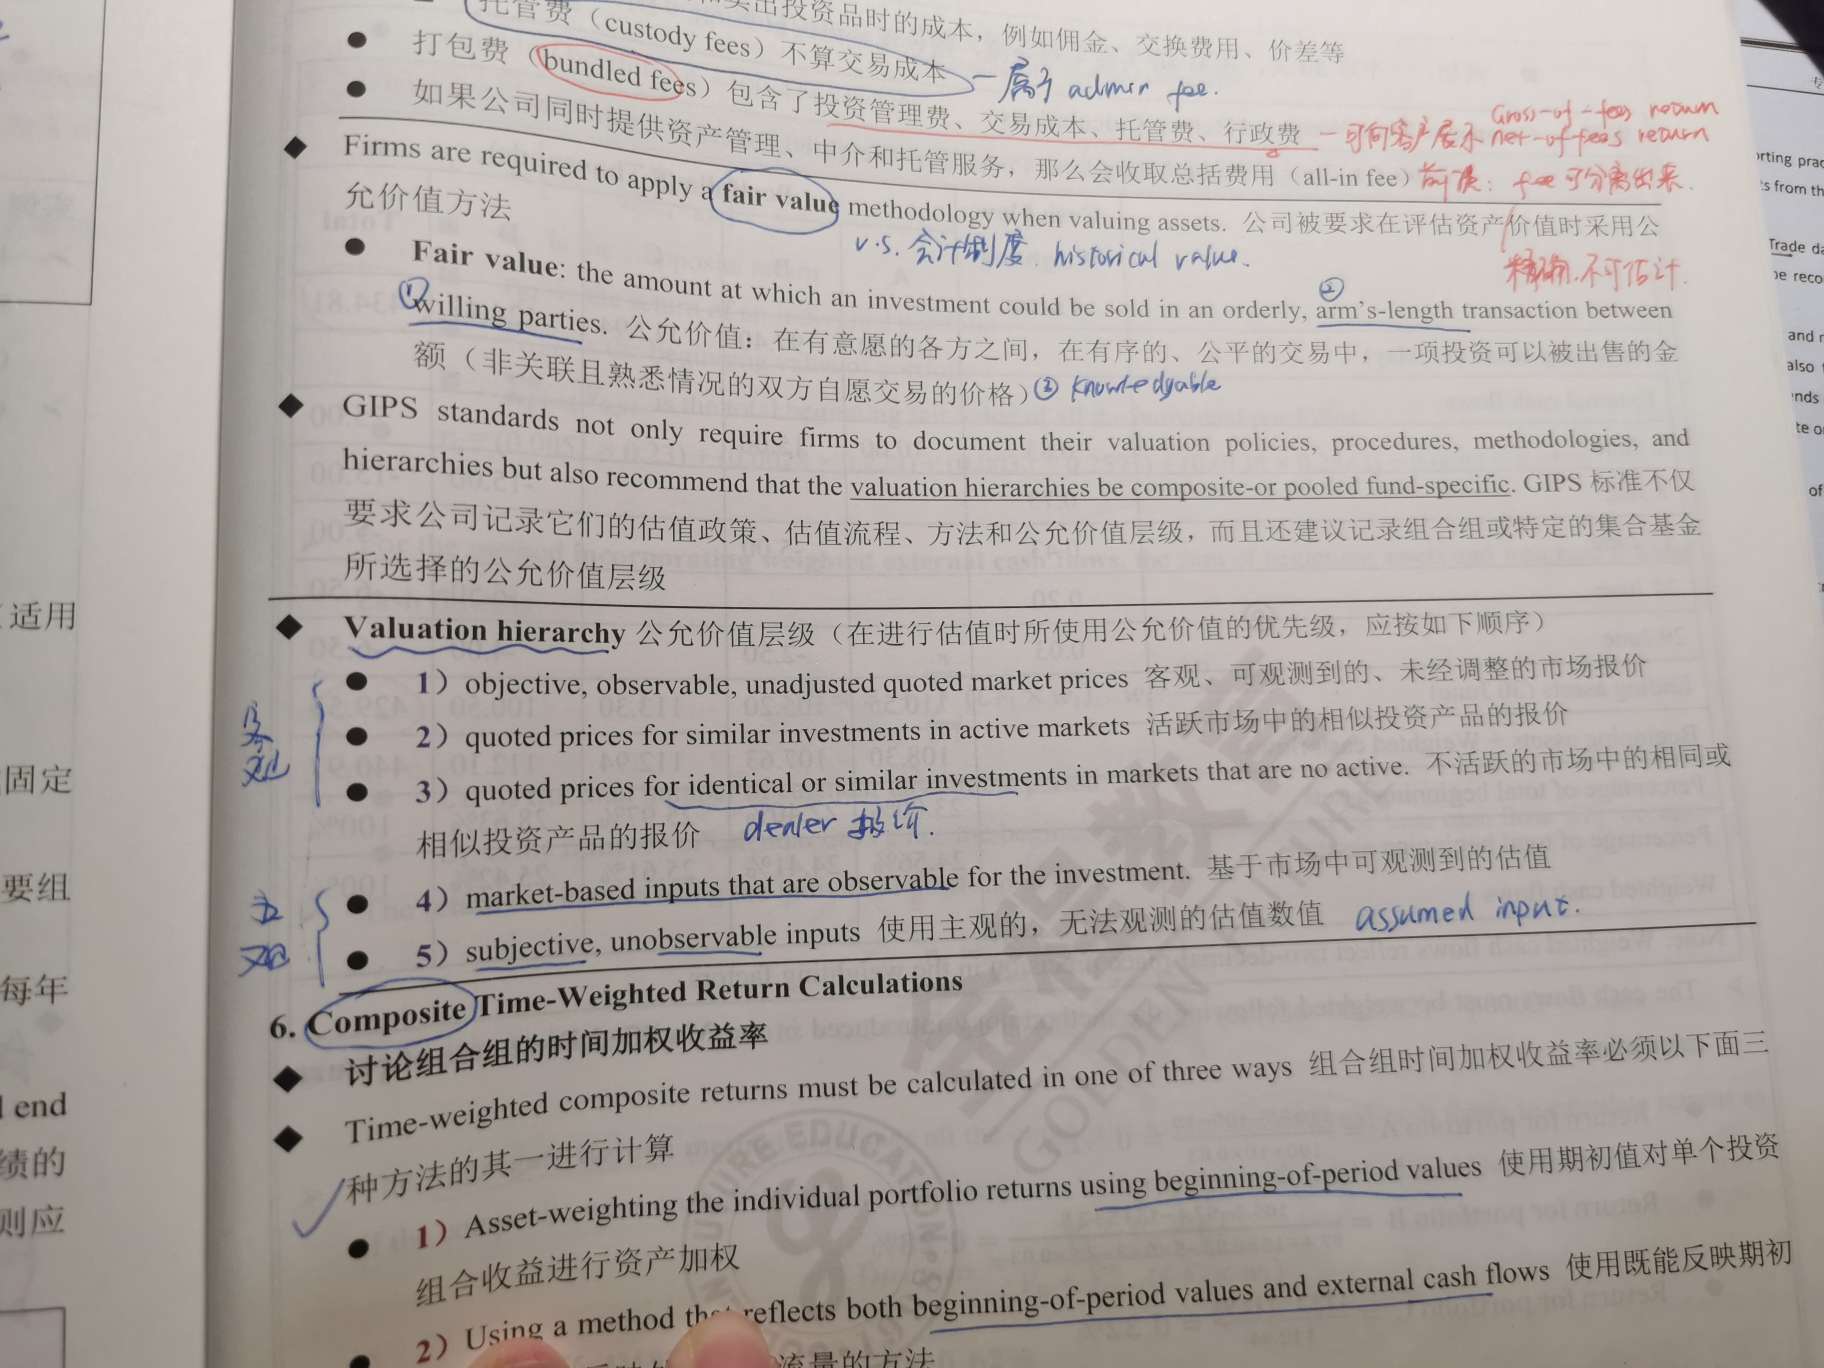 出投资品时的成本，例如佣金、交换费用、价差等
托管费（custody fees）不算交易成本
— 属于 admin fee.
打包费（bundled fees）包含了投资管理费、交易成本、托管费、行政费
— 可向客户展示
Gross-of-fees return
net-of-fees return
如果公司同时提供资产管理、中介和托管服务，那么会收取总括费用（all-in fee）
前提：fee可分离出来.
Firms are required to apply a fair value methodology when valuing assets. 公司被要求在评估资产价值时采用公
允价值方法
v.s. 会计制度. historical value.
精确.不可估计.
Fair value: the amount at which an investment could be sold in an orderly, arm's-length transaction between
① ②
willing parties. 公允价值：在有意愿的各方之间，在有序的、公平的交易中，一项投资可以被出售的金
额（非关联且熟悉情况的双方自愿交易的价格）
③ knowledgable
GIPS standards not only require firms to document their valuation policies, procedures, methodologies, and
hierarchies but also recommend that the valuation hierarchies be composite-or pooled fund-specific. GIPS 标准不仅
要求公司记录它们的估值政策、估值流程、方法和公允价值层级，而且还建议记录组合组或特定的集合基金
所选择的公允价值层级
Valuation hierarchy 公允价值层级（在进行估值时所使用公允价值的优先级，应按如下顺序）
1）objective, observable, unadjusted quoted market prices 客观、可观测到的、未经调整的市场报价
2）quoted prices for similar investments in active markets 活跃市场中的相似投资产品的报价
客
观
3）quoted prices for identical or similar investments in markets that are no active. 不活跃的市场中的相同或
相似投资产品的报价
dealer 报价.
4）market-based inputs that are observable for the investment. 基于市场中可观测到的估值
主
观
5）subjective, unobservable inputs 使用主观的，无法观测的估值数值
assumed input.
6. Composite Time-Weighted Return Calculations
讨论组合组的时间加权收益率
Time-weighted composite returns must be calculated in one of three ways 组合组时间加权收益率必须以下面三
种方法的其一进行计算
1）Asset-weighting the individual portfolio returns using beginning-of-period values 使用期初值对单个投资
组合收益进行资产加权
2）Using a method that reflects both beginning-of-period values and external cash flows 使用既能反映期初
流量的方法
适用
固定
要组
每年
end
绩的
则应
GOLDEN FUTURE
FUTURE EDUCATION
rting prac
s from th
Trade da
be reco
and r
also
nds
te o
of